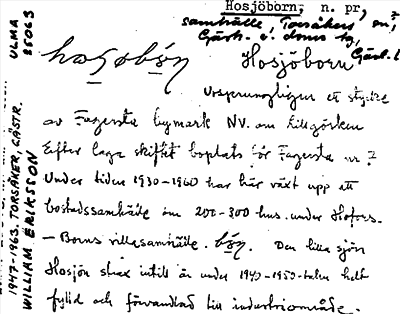 Hosjöborn, n. pr,
samhälle, Torsåkers sn,
Gästr. o. dens lg, Gästr. l
hosobón Hosjöborn
Ursprungligen ett stycke
av Fagersta bymark NV. om lillgården
Efter laga skiftet boplats för Fagersta nr 7
Under tiden 1930-1960 har här växt upp ett
bostadssamhälle om 200-300 hus. under Hofors.
— Borns villasamhälle. bón. Den lilla sjön
Hosjön strax intill är under 1940-1950-talen helt
fylld och förvandlad till industriområde.
ULMA
25063
1947-1963. TORSÅKER, GÄSTR.
WILLIAM ERIKSSON